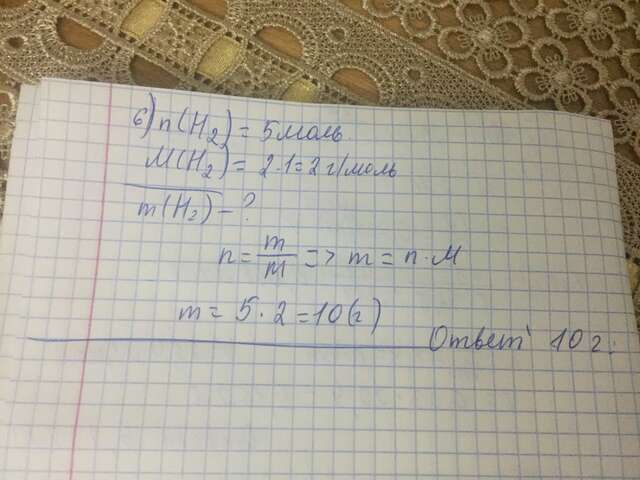 б) n(H₂) = 5 моль.
M(H₂) = 2·1=2 г/моль
m(H₂) – ?
n = m/M => m = n·M
m = 5·2=10(г)
Ответ 10 г.